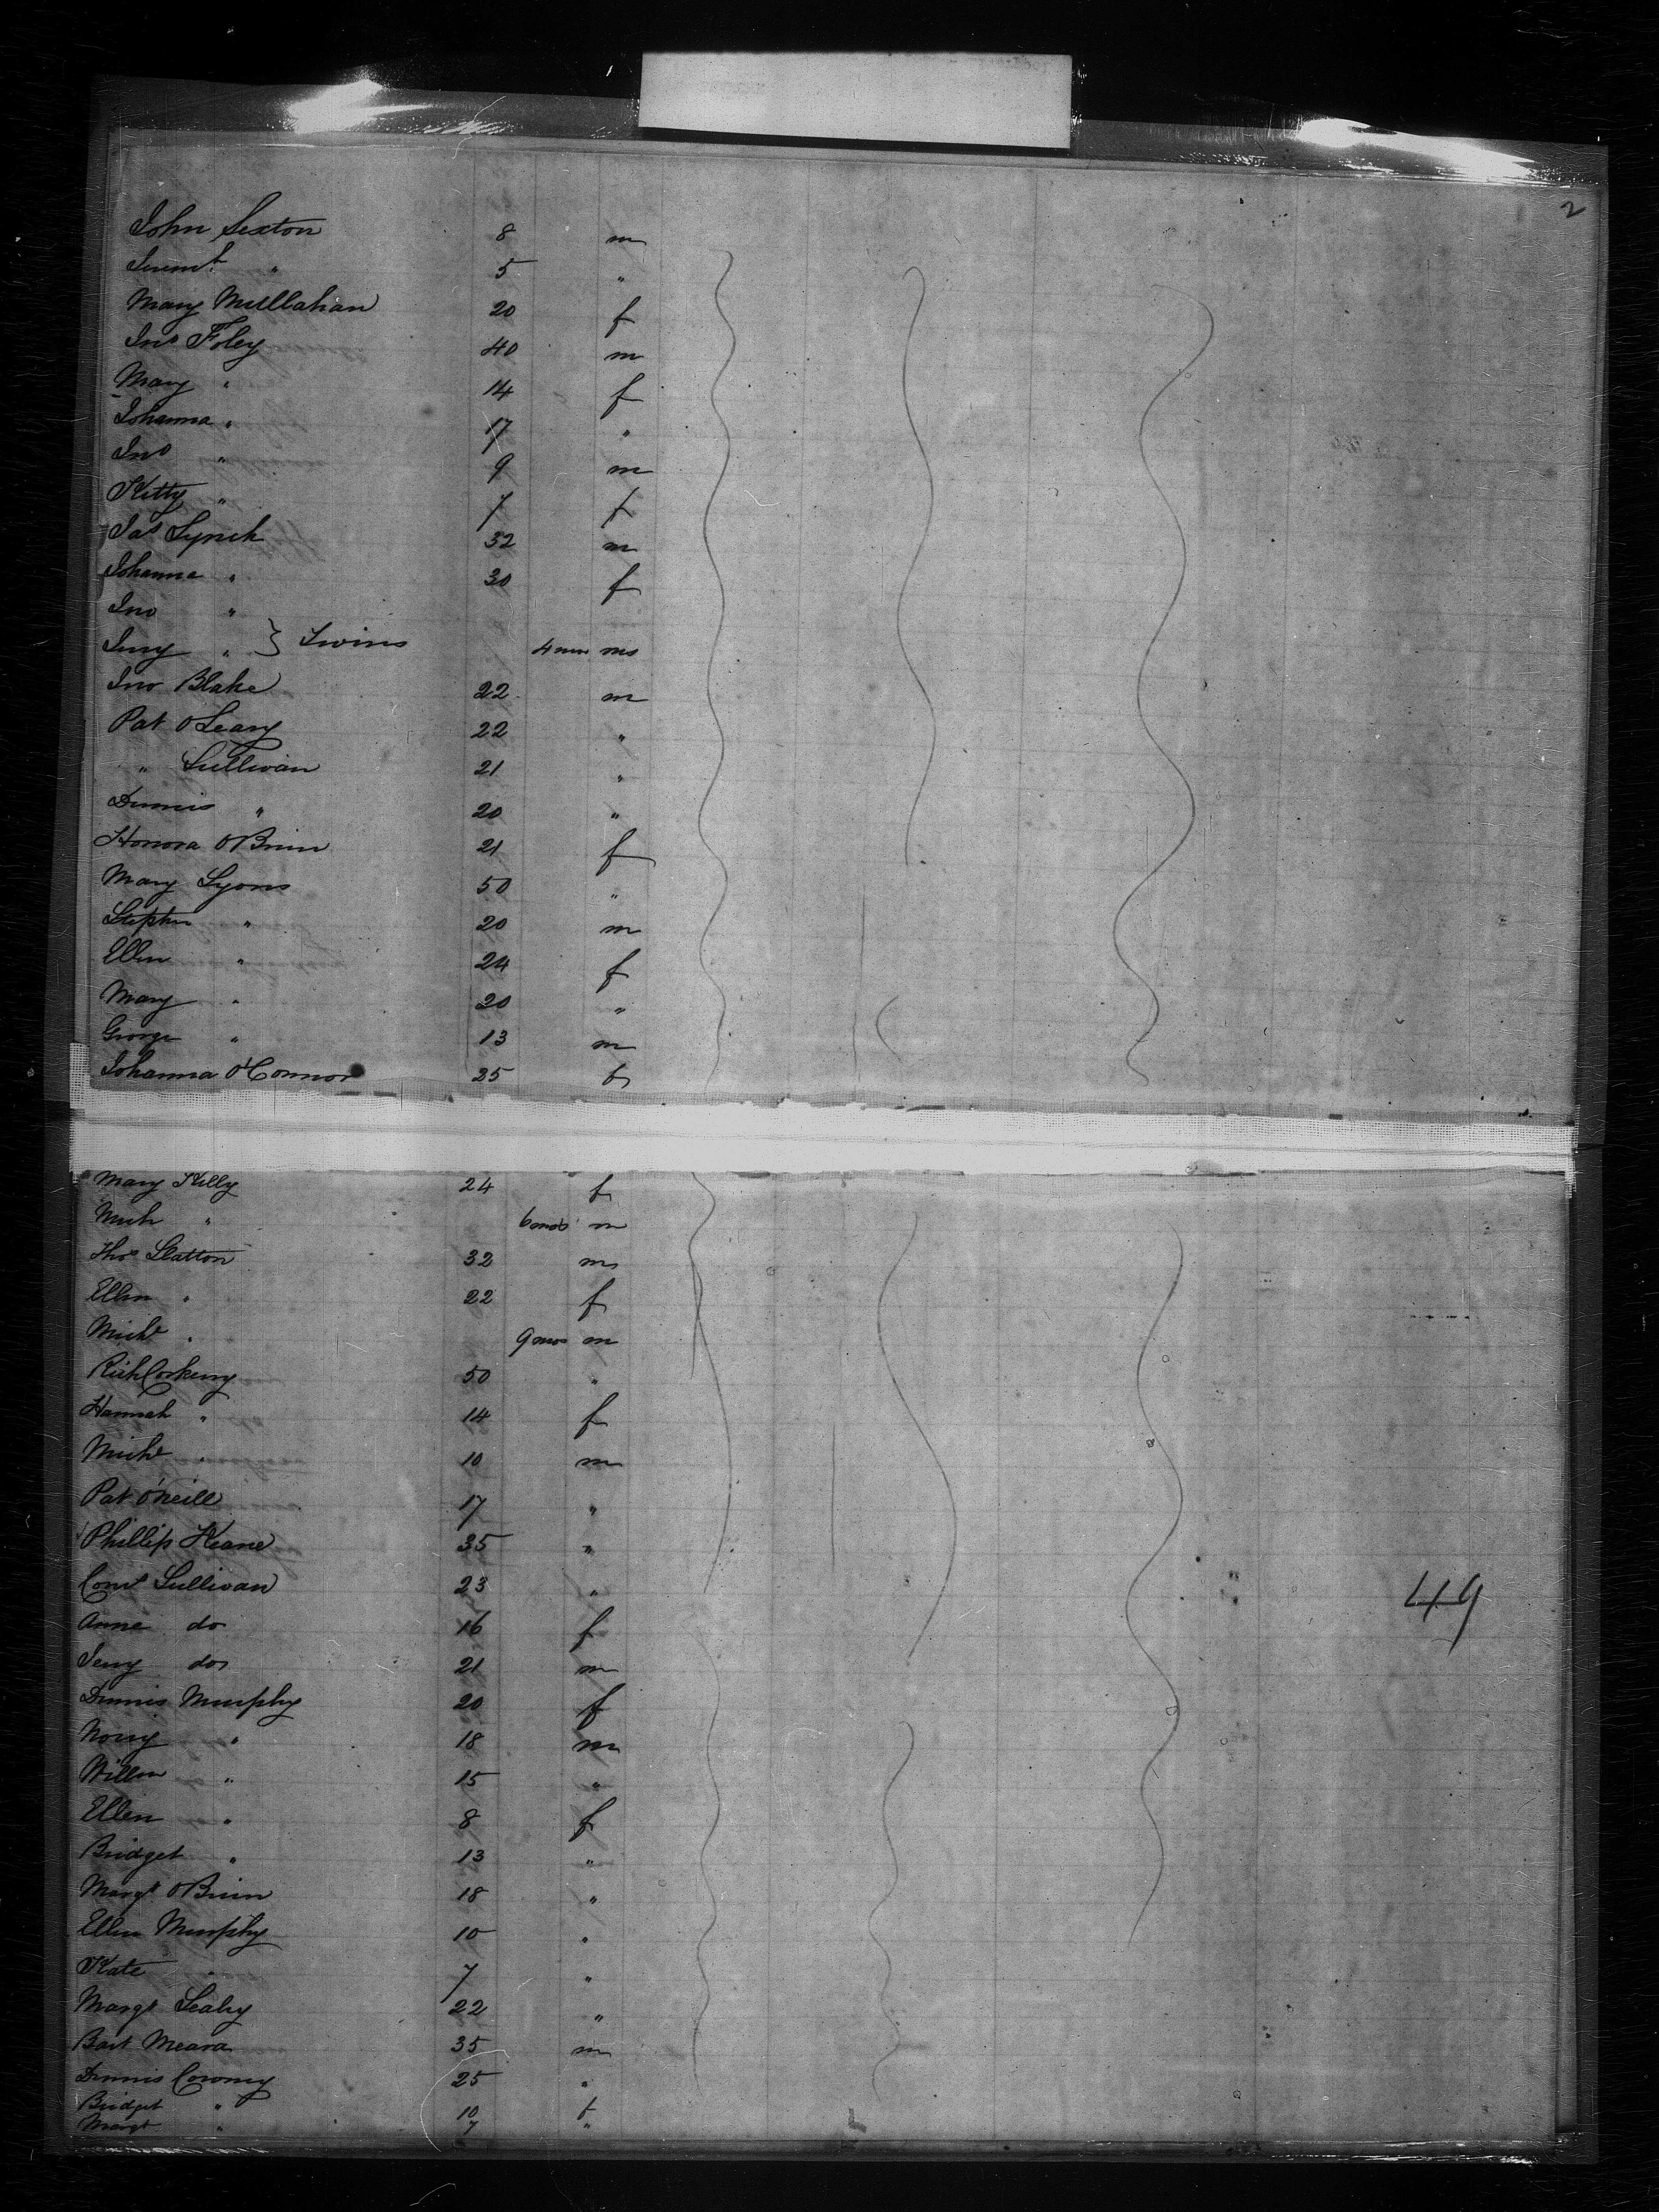 2
John Sexton 8 m
" 5 "
Mary Mullahan 20 f
Jno Foley 40 m
Mary " 14 f
Johanna " 17 "
Jno " 9 m
Kitty " 7 f
Jas Lynch 32 m
Johanna " 30 f
Jno "
Jerry " } Twins 4 mos ms
Jno Blake 22 m
Pat OLeary 22 "
" Sullivan 21 "
Dennis " 20 "
Honora OBrien 21 f
Mary Lyons 50 "
Stephen " 20 m
Ellen " 24 f
Mary " 20 "
George " 13 m
Johanna O'Connor 25 f
Mary Kelly 24 f
Mich " 6 mos m
Thos Slatton 32 m
Ellen " 22 f
Michl " 9 mos m
Rich Corkery 50 "
Hannah " 14 f
Michl " 10 m
Pat O'Neill 17 "
Phillip Keane 35 "
Corns Sullivan 23 "
49
Anne do 16 f
Jerry do 21 m
Dennis Murphy 20 f
Norry " 18 m
Willm " 15 "
Ellen " 8 f
Bridget " 13 "
Margt OBrien 18 "
Ellen Murphy 10 "
Kate " 7 "
Margt Leahy 22 "
Bart Meara 35 m
Dennis Coroney 25 "
Bridget " 10 f
Margt " 7 "